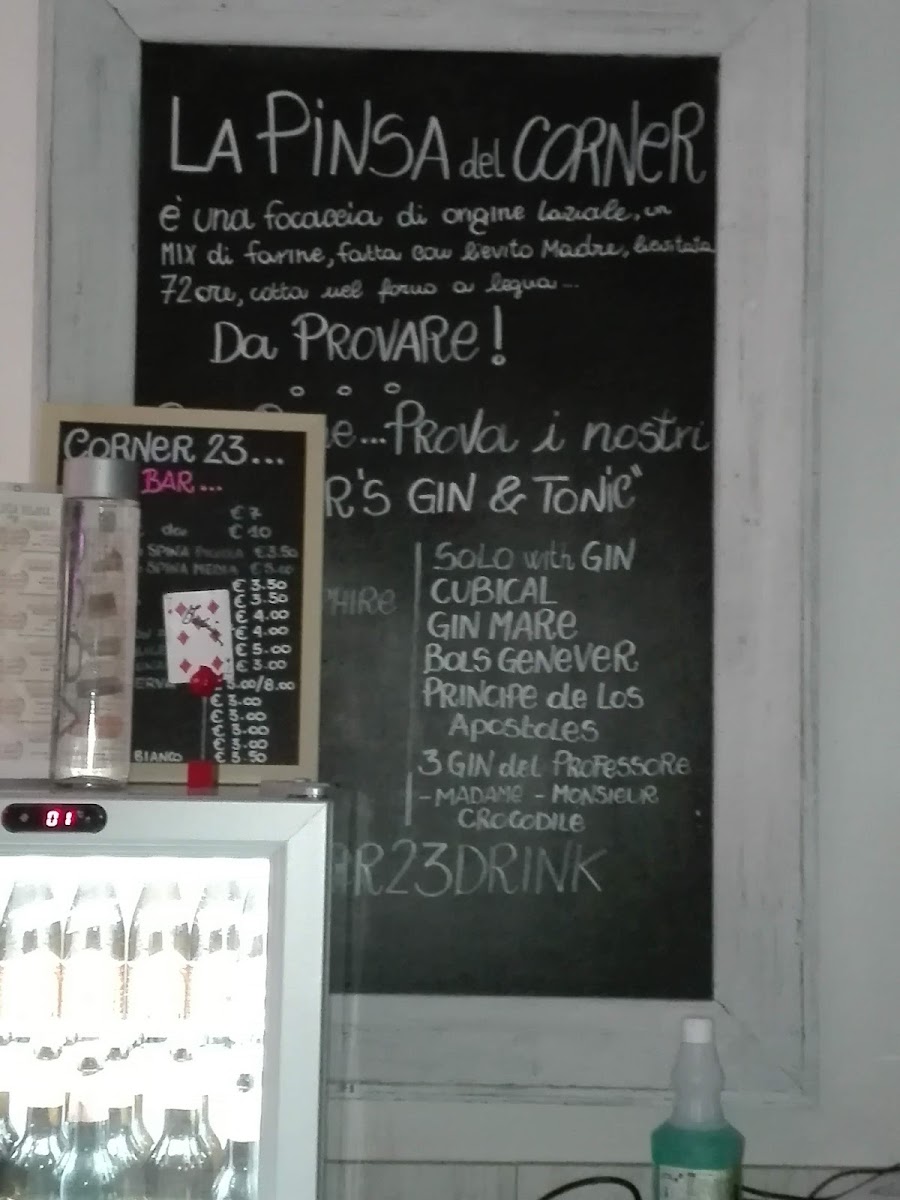 LA PINSA del CORNER
è una focaccia di origine laziale, un
MIX di farine, fatta con lievito Madre, lievitata
72 ore, cotta nel forno a legna...
Da PROVARE!
...PROVA i nostri
R'S GIN & TONIC"
SOLO with GIN
PHIRE
CUBICAL
GIN MARE
BOLS GENEVER
PRINCIPE de LOS
APOSTOLES
3 GIN del PROFESSORE
- MADAME - MONSIEUR
CROCODILE
R23DRINK
CORNER 23...
BAR...
€ 7
da € 10
SPINA PICCOLA €3.50
SPINA MEDIA €5.00
€ 3.50
€ 3.50
€ 4.00
€ 4.00
€ 5.00
€ 3.00
ERVA 5.00/8.00
€ 3.00
€ 3.00
€ 3.00
BIANCO € 3.50
01